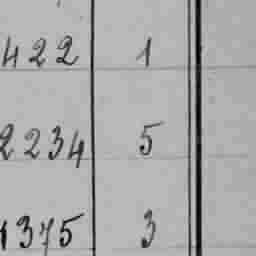 422 1
2234 5
1375 3